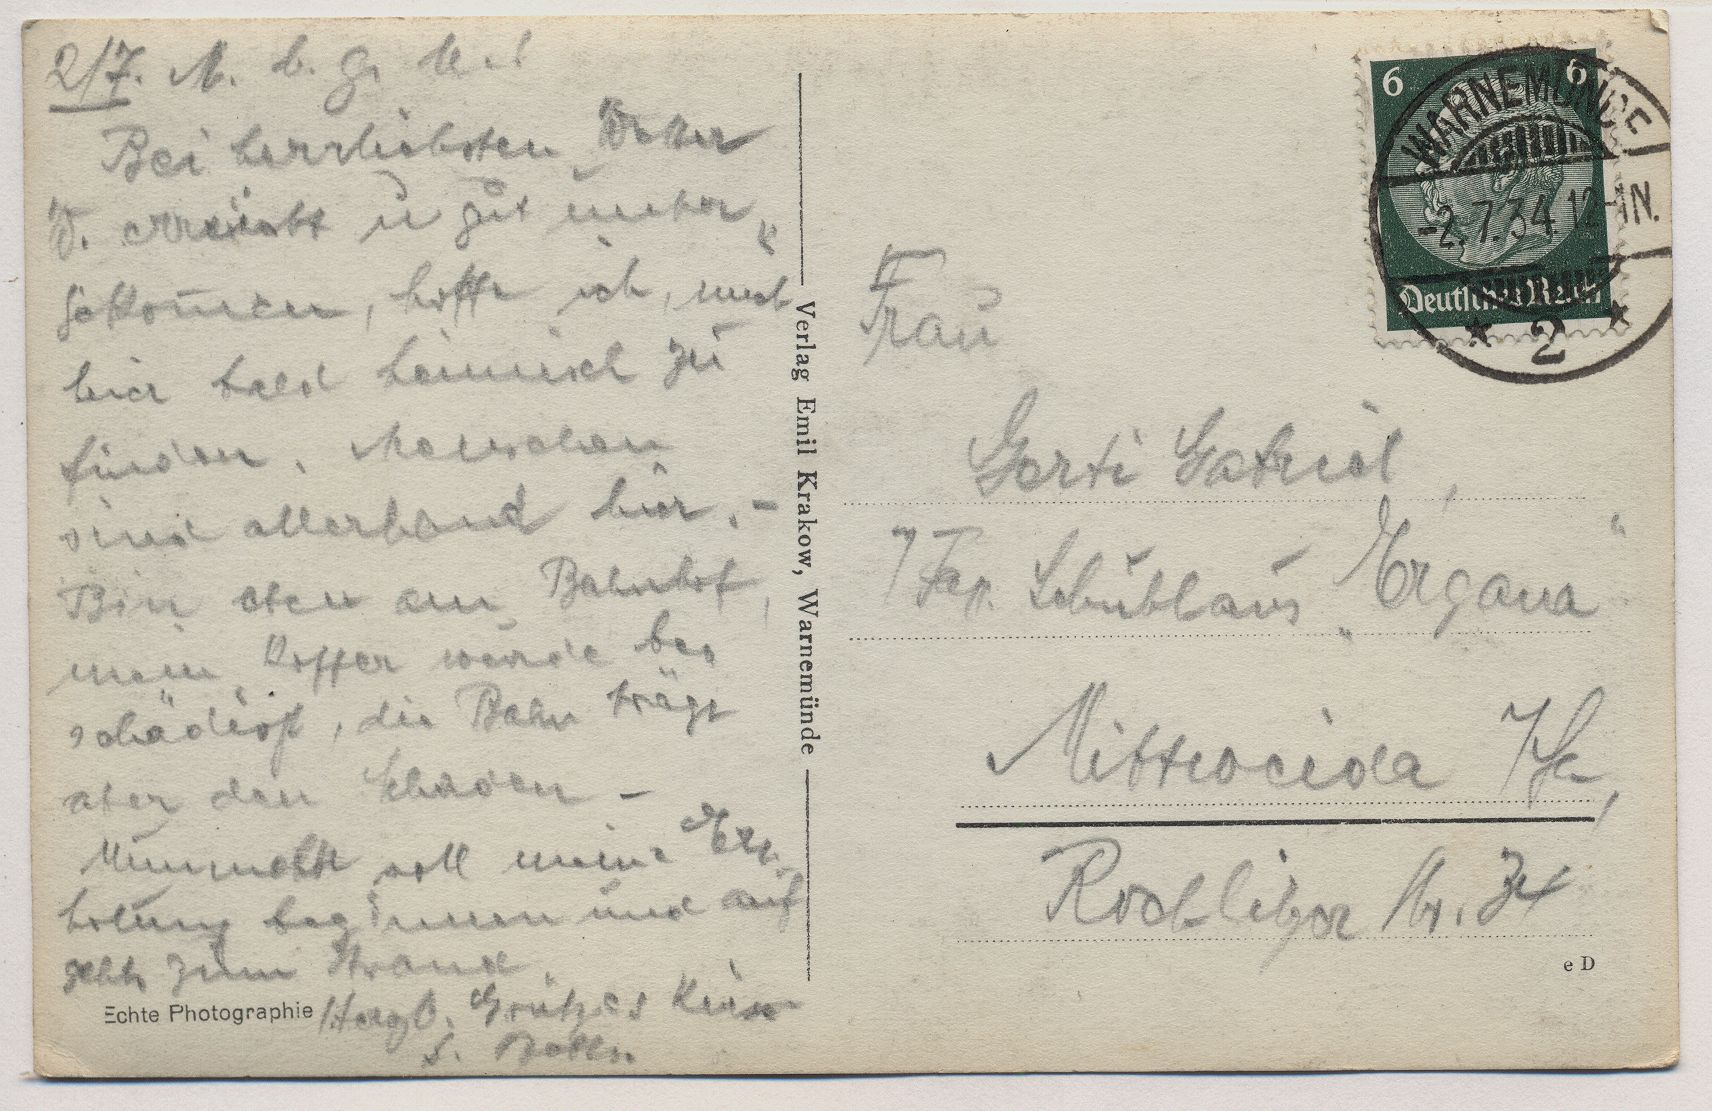 2/7. M. b. g. M.!
Bei herrlichsten Wetter
W. erreicht u gut unter
gekommen, hoffe ich, mich
hier bald heimisch zu
finden. Menschen
sind allerhand hier. –
Bin eben am Bahnhof,
mein Koffer wurde be-
schädigt, die Bahn trägt
aber den Schaden –
Nunmehr soll meine Er-
holung beginnen und auf
gehts zum Strand.
Herzl. Grüße
Echte Photographie
Verlag Emil Krakow, Warnemünde
WARNEMÜNDE
-2.7.34. 12-1N.
2
6 6
Deutsches Reich
Frau
Gerti Gabriel,
Schuhhaus "Ergana"
Mittweida /Sa,
Rochlitzer Str. 34
e D